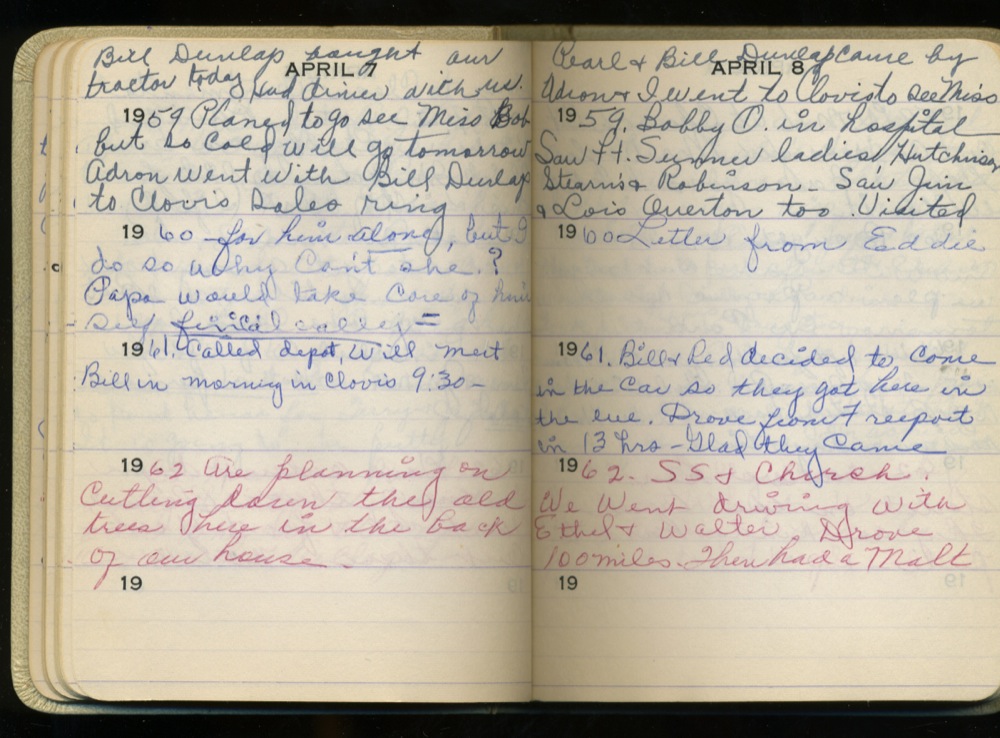 Bill Dunlap bought our
APRIL 7
tractor today had dinner with us.
1959 Planed to go see Miss Bob
but so cold will go tomorrow
Adron went with Bill Dunlap
to Clovis Sales ring
1960 - for him along, but I
do so why can't she.?
Papa would take care of him
self
1961. Called depot, will meet
Bill in morning in Clovis 9:30 -
1962 are planning on
Cutting down the old
trees here in the back
of our house.
19
Pearl & Bill Dunlap came by
APRIL 8
Adron & I went to Clovis to see Miss
1959. Bobby O. in hospital
Saw Ft. Sumner ladies Hutchison
Stearns & Robinson - Saw Jim
& Lois Overton too. Visited
1960 Letter from Eddie
1961. Bill & Red decided to come
in the car so they got here in
the eve. Drove from Freeport
in 13 hrs - Glad they came
1962. SS & Church.
We went driving with
Ethel & Walter. Drove
100 miles. Then had a Malt
19